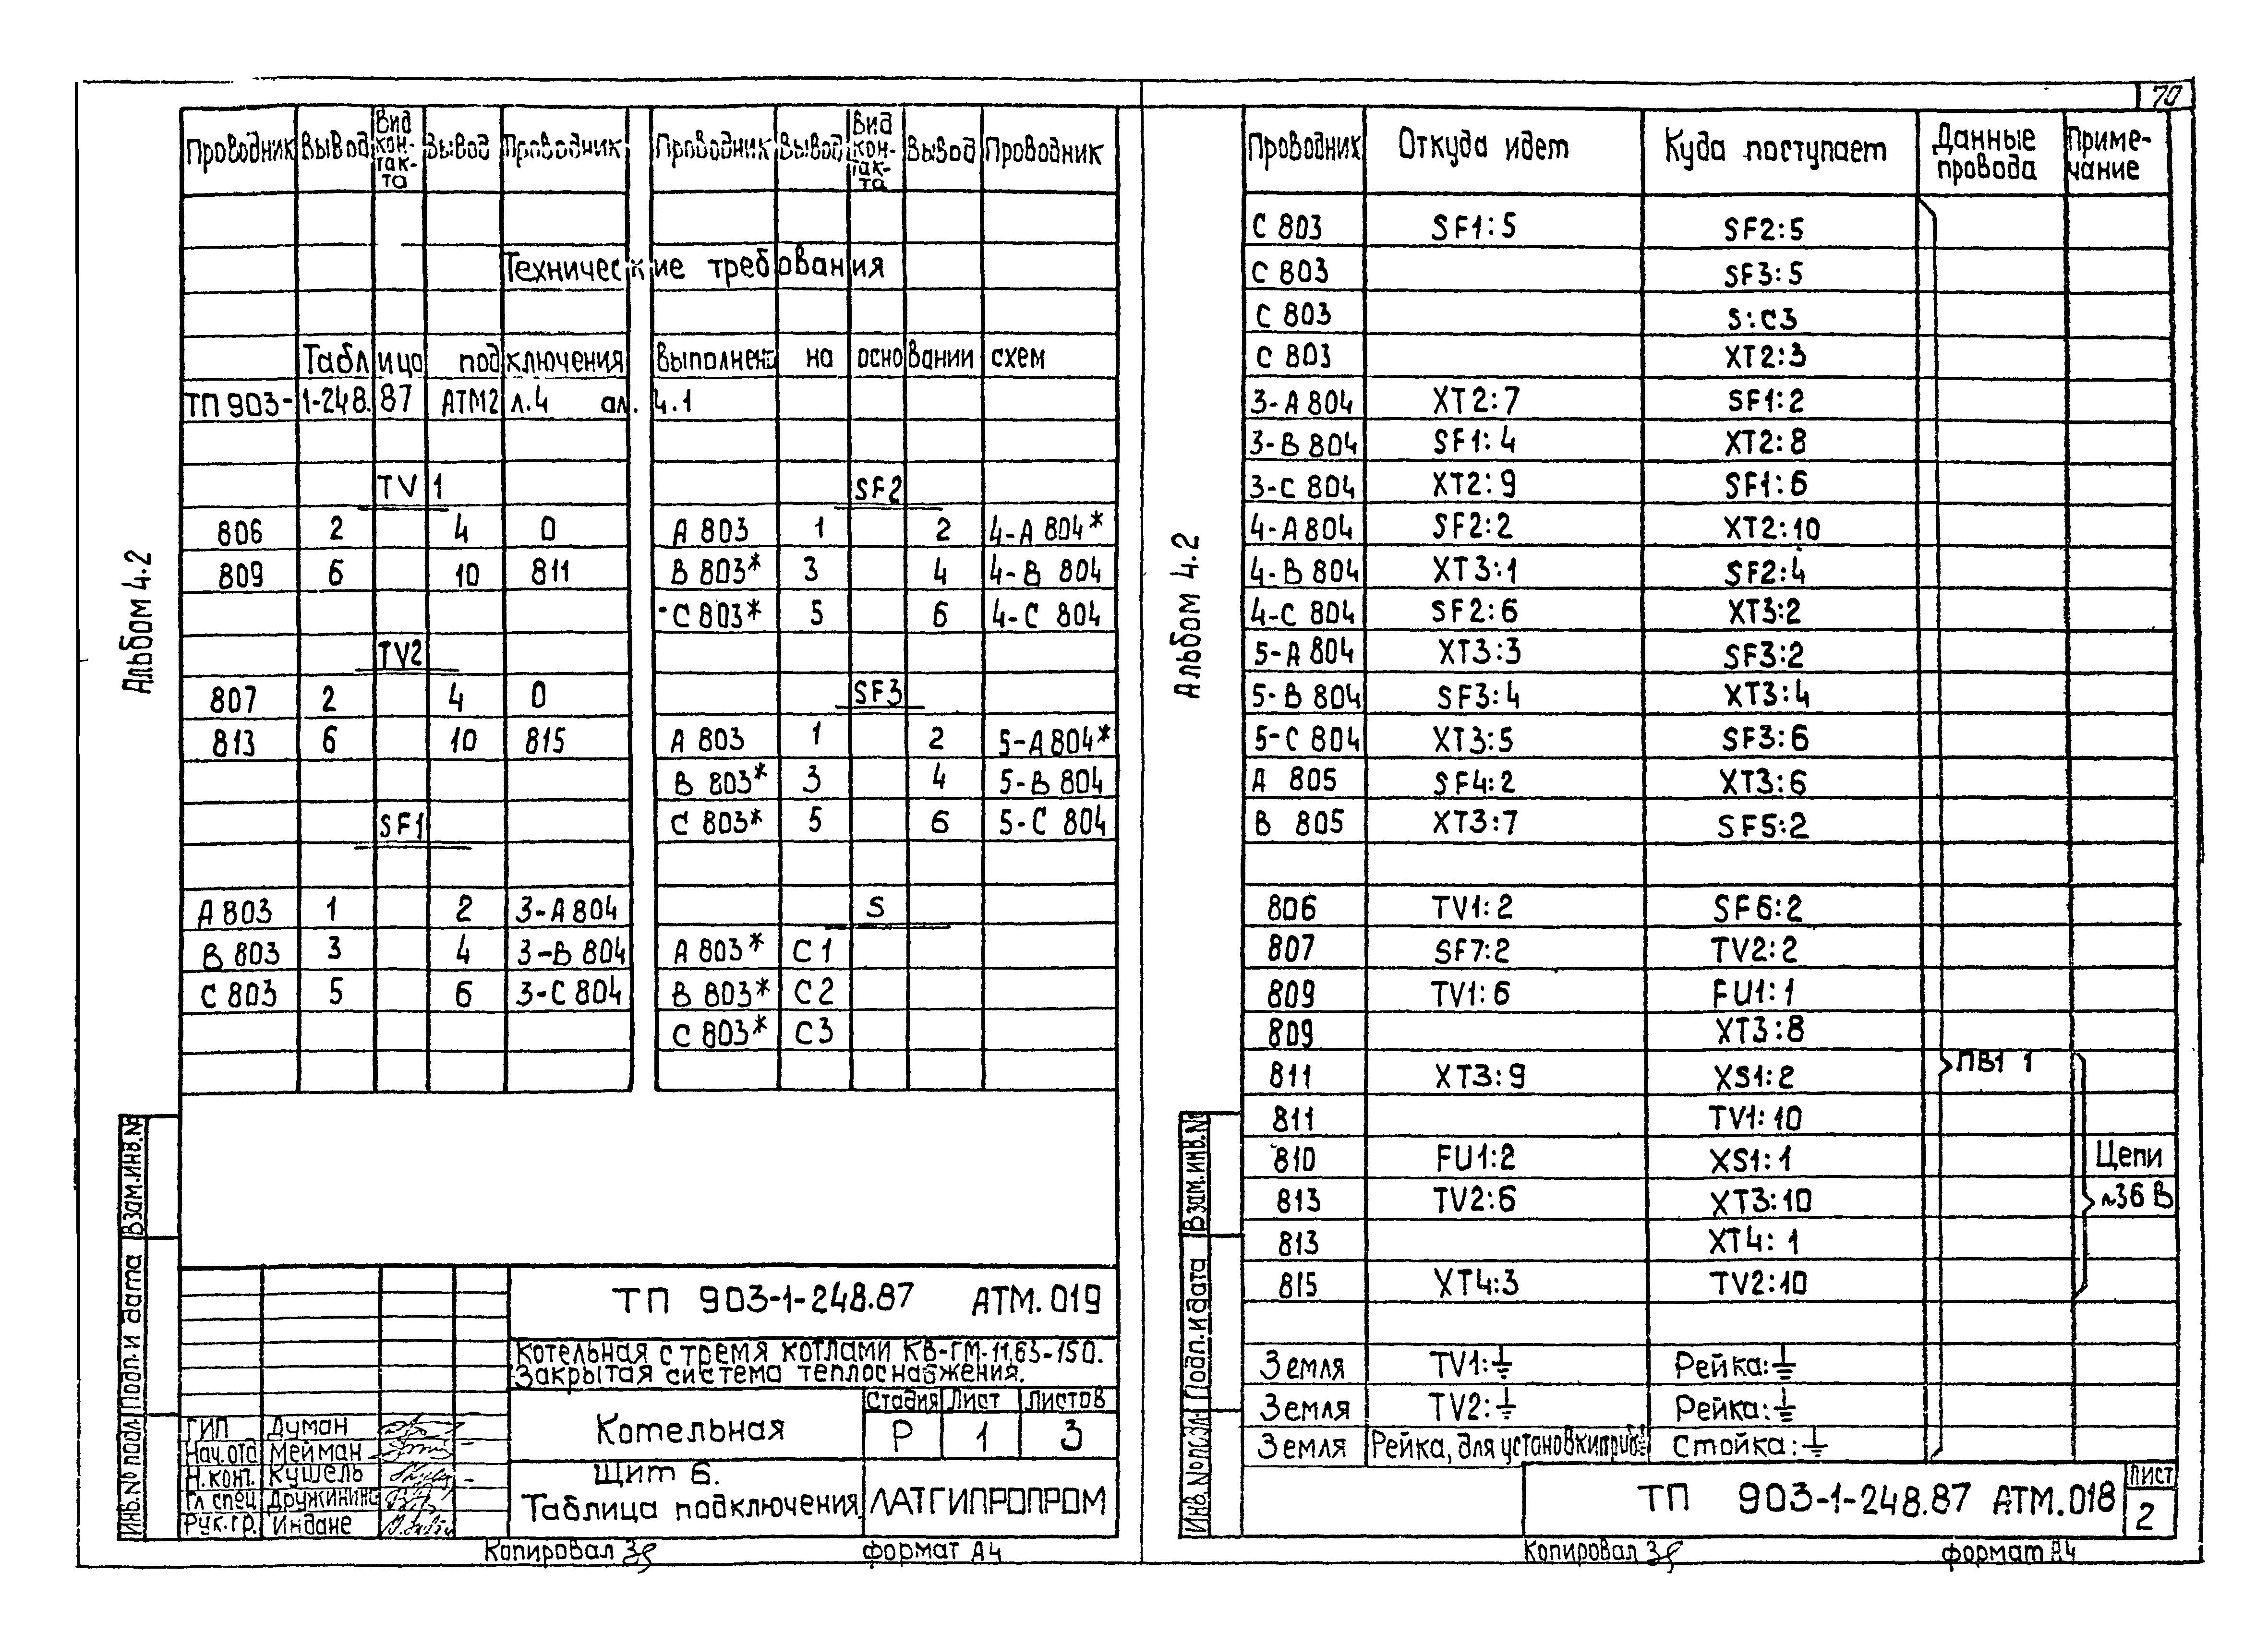 70
Альбом 4.2
Проводник Вывод Вид кон-так-та Вывод Проводник Проводник Вывод Вид кон-так-та Вывод Проводник
Технические требования
Таблица подключения выполнена на основании схем
ТП 903-1-248.87 АТМ2 л.4 ал. 4.1
TV1
806 2 4 0
809 6 10 811
TV2
807 2 4 0
813 6 10 815
SF1
А 803 1 2 3-А 804
В 803 3 4 3-В 804
С 803 5 6 3-С 804
SF2
А 803 1 2 4-А 804*
В 803* 3 4 4-В 804
С 803* 5 6 4-С 804
SF3
А 803 1 2 5-А 804*
В 803* 3 4 5-В 804
С 803* 5 6 5-С 804
S
А 803* С1
В 803* С2
С 803* С3
Взам.инв.№
Подп. и дата
Инв.№ подл.
ТП 903-1-248.87 АТМ.019
Котельная с тремя котлами КВ-ГМ-11,63-150.
Закрытая система теплоснабжения.
Котельная
Стадия Лист Листов
Р 1 3
Щит 6.
Таблица подключения.
ЛАТГИПРОПРОМ
ГИП Думан
Нач.отд Мейман
Н.конт. Кушель
Гл спец Дружинина
Рук.гр. Индане
Копировал
формат А4
Альбом 4.2
Проводник Откуда идет Куда поступает Данные провода Приме-чание
С 803 SF1:5 SF2:5
С 803 SF3:5
С 803 S:C3
С 803 XT2:3
3-А 804 XT2:7 SF1:2
3-В 804 SF1:4 XT2:8
3-С 804 XT2:9 SF1:6
4-А 804 SF2:2 XT2:10
4-В 804 XT3:1 SF2:4
4-С 804 SF2:6 XT3:2
5-А 804 XT3:3 SF3:2
5-В 804 SF3:4 XT3:4
5-С 804 XT3:5 SF3:6
А 805 SF4:2 XT3:6
В 805 XT3:7 SF5:2
806 TV1:2 SF6:2
807 SF7:2 TV2:2
809 TV1:6 FU1:1
809 XT3:8
811 XT3:9 XS1:2 ПВ1 1
811 TV1:10
810 FU1:2 XS1:1 Цепи
813 TV2:6 XT3:10 ~36 В
813 XT4:1
815 XT4:3 TV2:10
Земля TV1:⏚ Рейка:⏚
Земля TV2:⏚ Рейка:⏚
Земля Рейка, для установки приб. Стойка:⏚
Взам.инв.№
Подп. и дата
Инв.№ подл.
ТП 903-1-248.87 АТМ.018
Лист
2
Копировал
формат А4